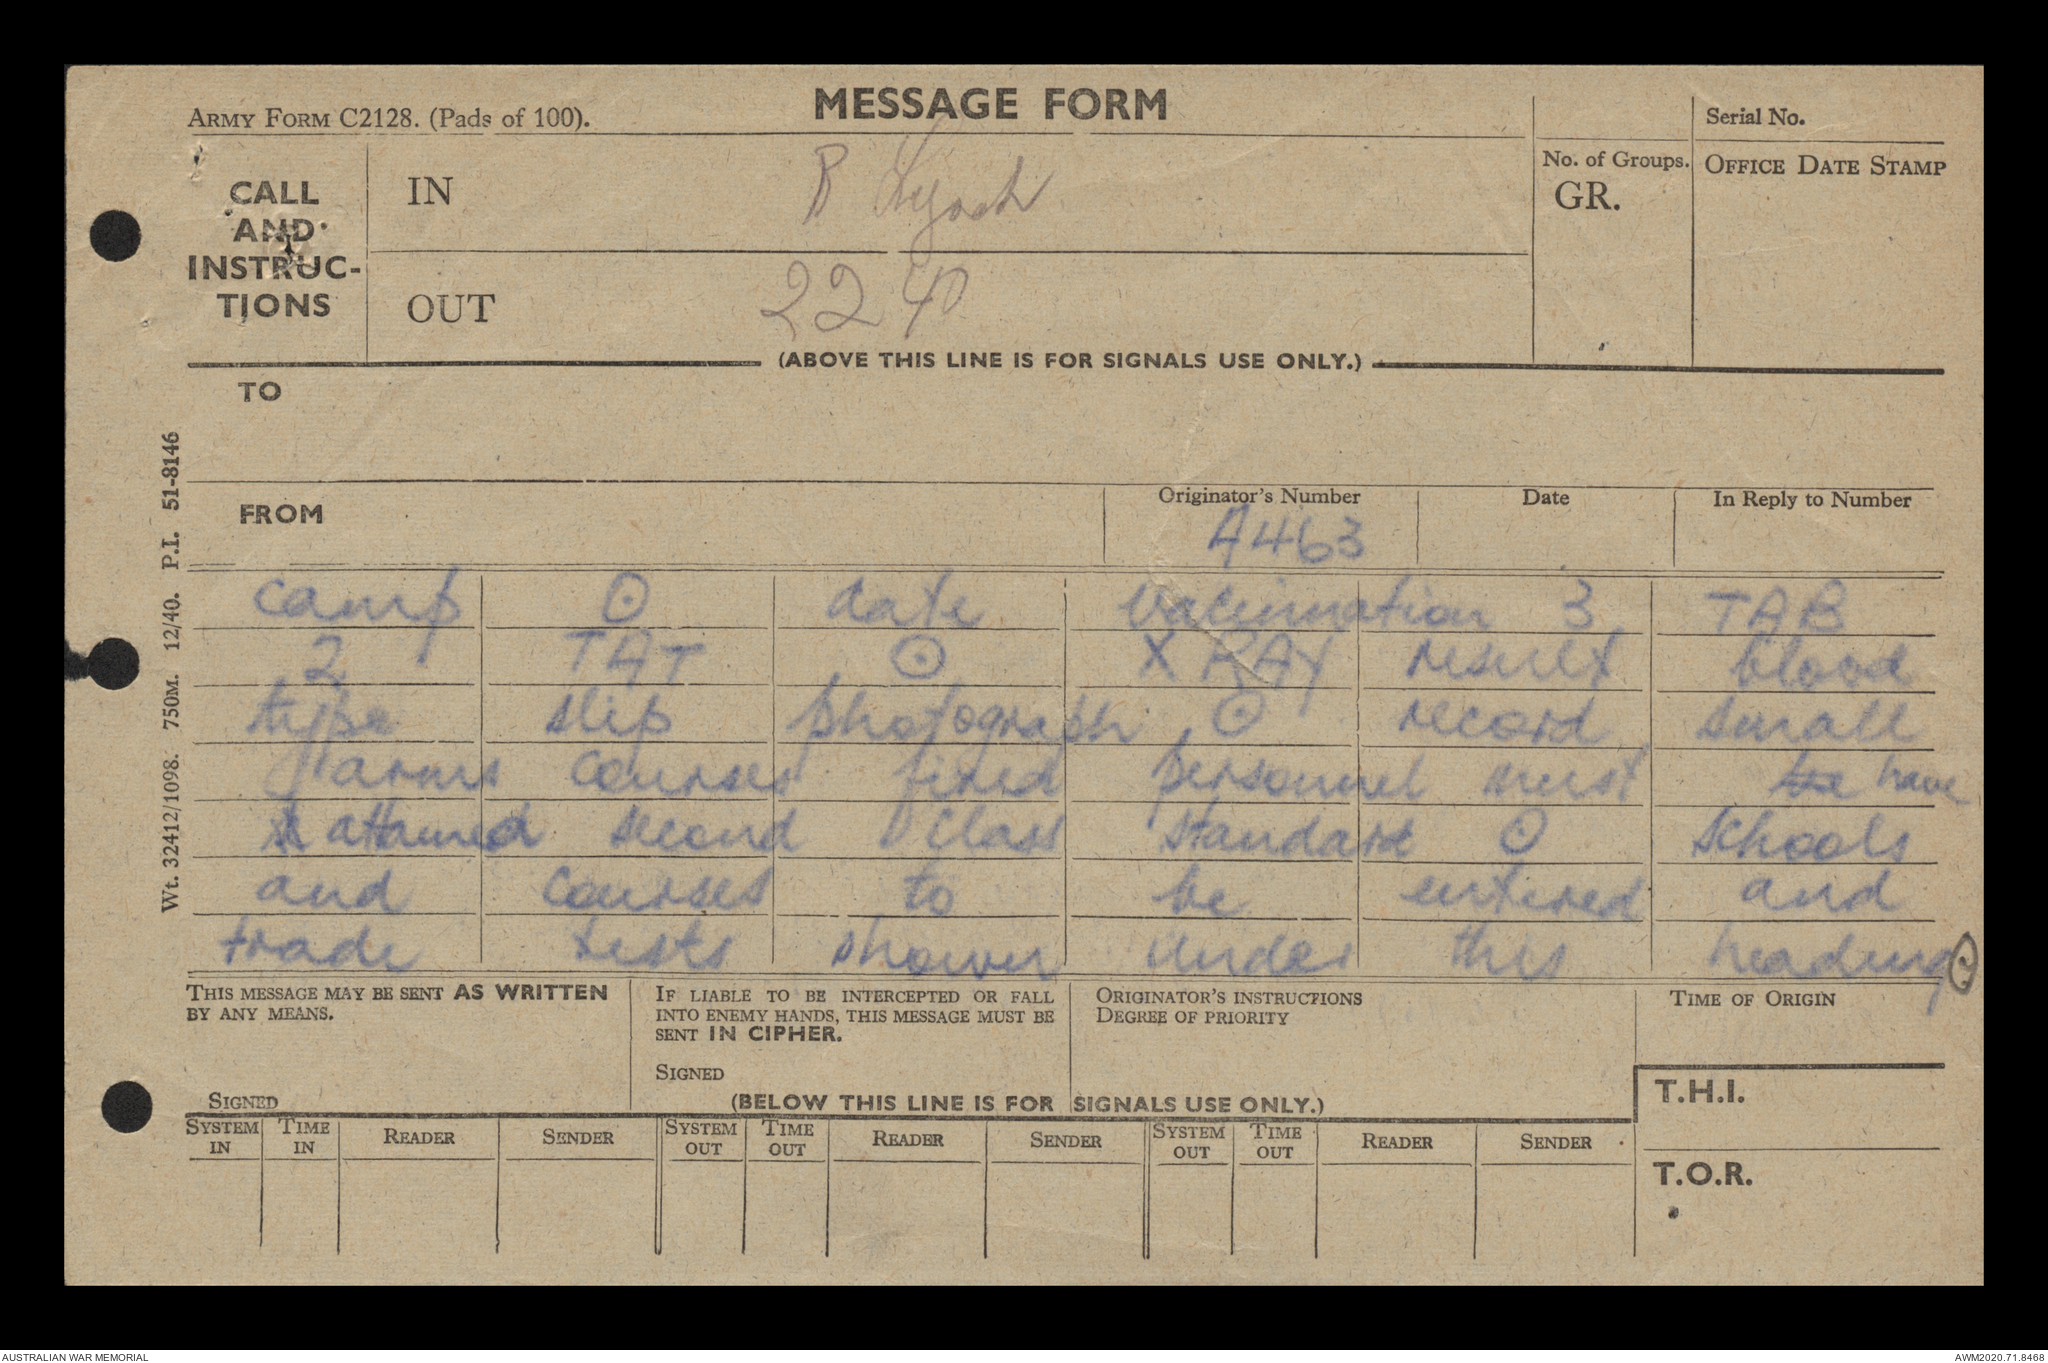 MESSAGE FORM
ARMY FORM C2128. (Pads of 100).
Serial No.
CALL AND INSTRUC-TIONS
IN
R
No. of Groups.
GR.
OFFICE DATE STAMP
OUT
2240
(ABOVE THIS LINE IS FOR SIGNALS USE ONLY.)
TO
FROM
Originator's Number
A463
Date
In Reply to Number
camp ⊙ date vaccination 3 TAB
2 TAT ⊙ X RAY result blood
type slip photograph ⊙ record small
arms courses fired personnel must be have
attained second class standard ⊙ schools
and courses to be entered and
trade tests shown under this heading ⊙
THIS MESSAGE MAY BE SENT AS WRITTEN
BY ANY MEANS.
SIGNED
IF LIABLE TO BE INTERCEPTED OR FALL
INTO ENEMY HANDS, THIS MESSAGE MUST BE
SENT IN CIPHER.
SIGNED
ORIGINATOR'S INSTRUCTIONS
DEGREE OF PRIORITY
TIME OF ORIGIN
(BELOW THIS LINE IS FOR SIGNALS USE ONLY.)
T.H.I.
SYSTEM IN TIME IN READER SENDER SYSTEM OUT TIME OUT READER SENDER SYSTEM OUT TIME OUT READER SENDER
T.O.R.
Wt. 32412/1098. 750M. 12/40. P.I. 51-8146
AUSTRALIAN WAR MEMORIAL
AWM2020.71.8468